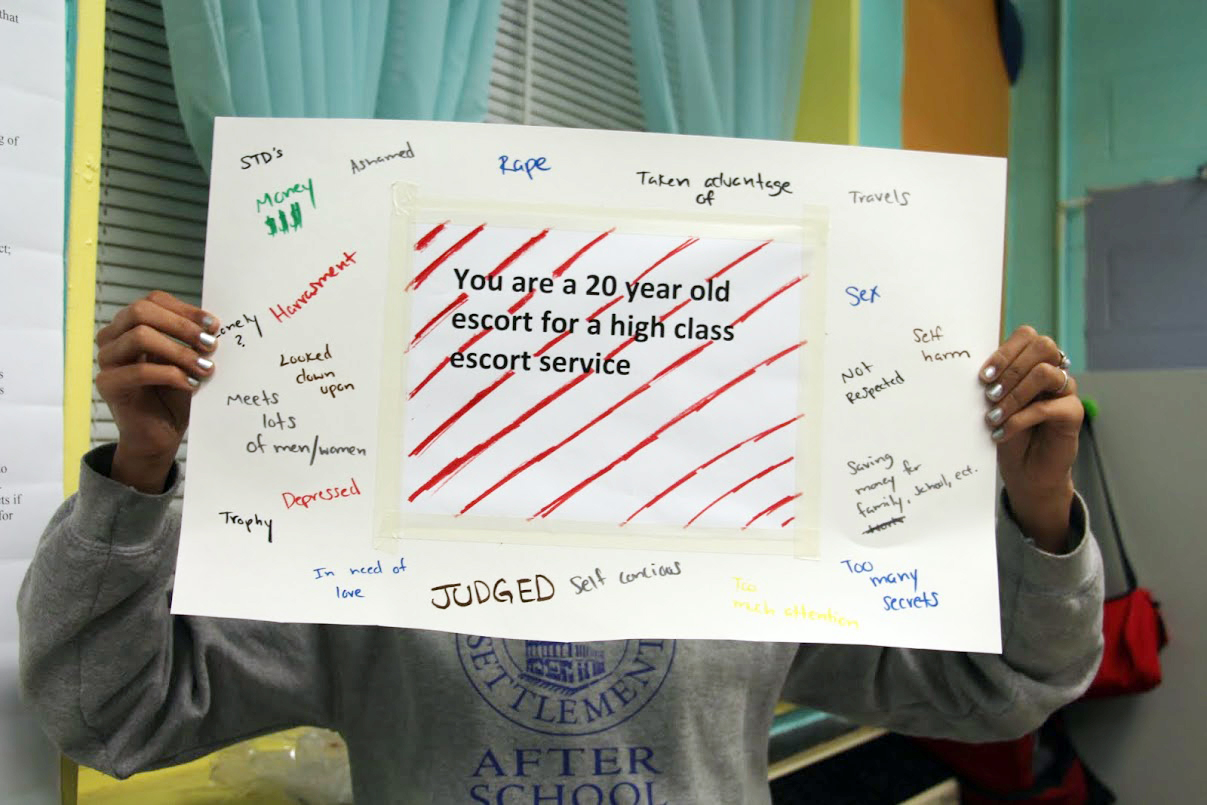 STD's
Ashamed
Rape
Taken advantage
of
Travels
Money
$$$
Harrasment
?
Looked
down
upon
Meets
lots
of men/women
Depressed
Trophy
You are a 20 year old
escort for a high class
escort service
Sex
Self
harm
Not
Respected
Saving
money for
family, school, ect.
In need of
love
JUDGED
Self concious
Too
much attention
Too
many
secrets
SETTLEMENT
AFTER
SCHOOL
that
g of
ct;
s
s
to
ts if
for